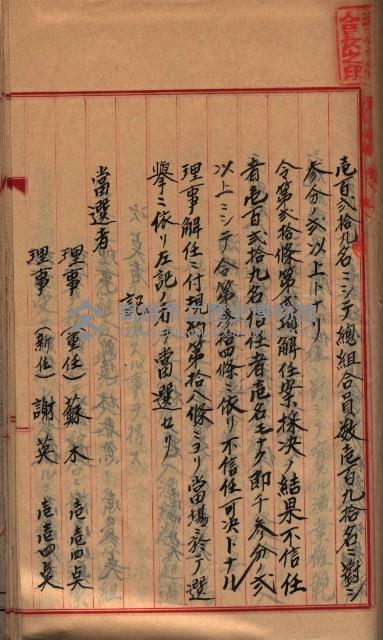 壱百弐拾九名ニシテ總組合員数壱百九拾名ニ對シ
参分ノ弐以上トナリ
令第弐拾條第弐項解任案採決ノ結果不信任
者壱百弐拾九名信任者壱名モナク即チ参分ノ弐
以上ニシテ令第参拾四條ニ依リ不信任可決トナル
理事解任ニ付規約第拾八條ニヨリ當場於テ選
擧ニ依リ左記ノ者ヲ當選セリ
記
當選者
理事（重任）蘇木 壱壱四点
理事（新任）謝英 壱壱四点